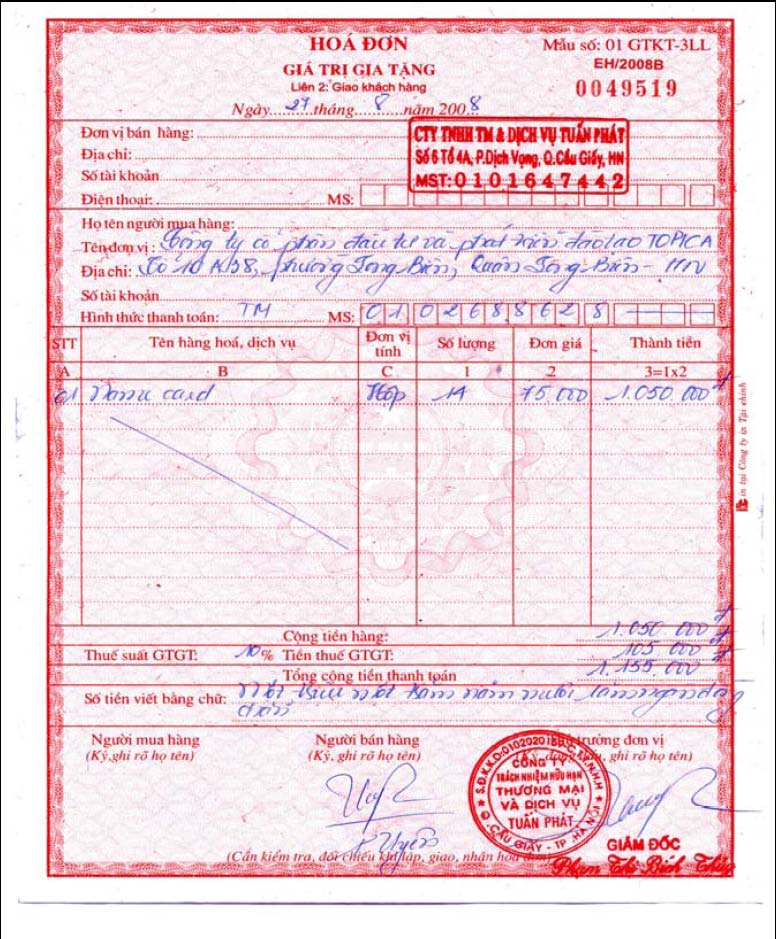 HOÁ ĐƠN
GIÁ TRỊ GIA TĂNG
Liên 2: Giao khách hàng
Ngày 27 tháng 8 năm 2008
Mẫu số: 01 GTKT-3LL
EH/2008B
0049519
Đơn vị bán hàng:
Địa chỉ:
Số tài khoản
Điện thoại: MS:
CTY TNHH TM & DỊCH VỤ TUẤN PHÁT
Số 6 Tổ 4A, P.Dịch Vọng, Q.Cầu Giấy, HN
MST: 0101647442
Họ tên người mua hàng:
Tên đơn vị: Công ty cổ phần đầu tư và phát triển đào tạo TOPICA
Địa chỉ: Số 10 A38, phường Long Biên, Quận Long Biên - HN
Số tài khoản
Hình thức thanh toán: TM MS: 0102688628
STT Tên hàng hoá, dịch vụ Đơn vị tính Số lượng Đơn giá Thành tiền
A B C 1 2 3=1x2
01 Name card Hộp 14 75.000 1.050.000đ
Cộng tiền hàng: 1.050.000đ
Thuế suất GTGT: 10% Tiền thuế GTGT: 105.000đ
Tổng cộng tiền thanh toán 1.155.000đ
Số tiền viết bằng chữ: Một triệu một trăm năm mươi lăm ngàn đồng
chẵn
Người mua hàng Người bán hàng Thủ trưởng đơn vị
(Ký, ghi rõ họ tên) (Ký, ghi rõ họ tên) ghi rõ họ tên)
CÔNG TY
TRÁCH NHIỆM HỮU HẠN
THƯƠNG MẠI
VÀ DỊCH VỤ
TUẤN PHÁT
Q. CẦU GIẤY - TP HÀ NỘI
Uyên
GIÁM ĐỐC
Phạm Thị Bích Thủy
(Cần kiểm tra, đối chiếu khi lập, giao, nhận hoá đơn)
in tại Công ty in Tài chính